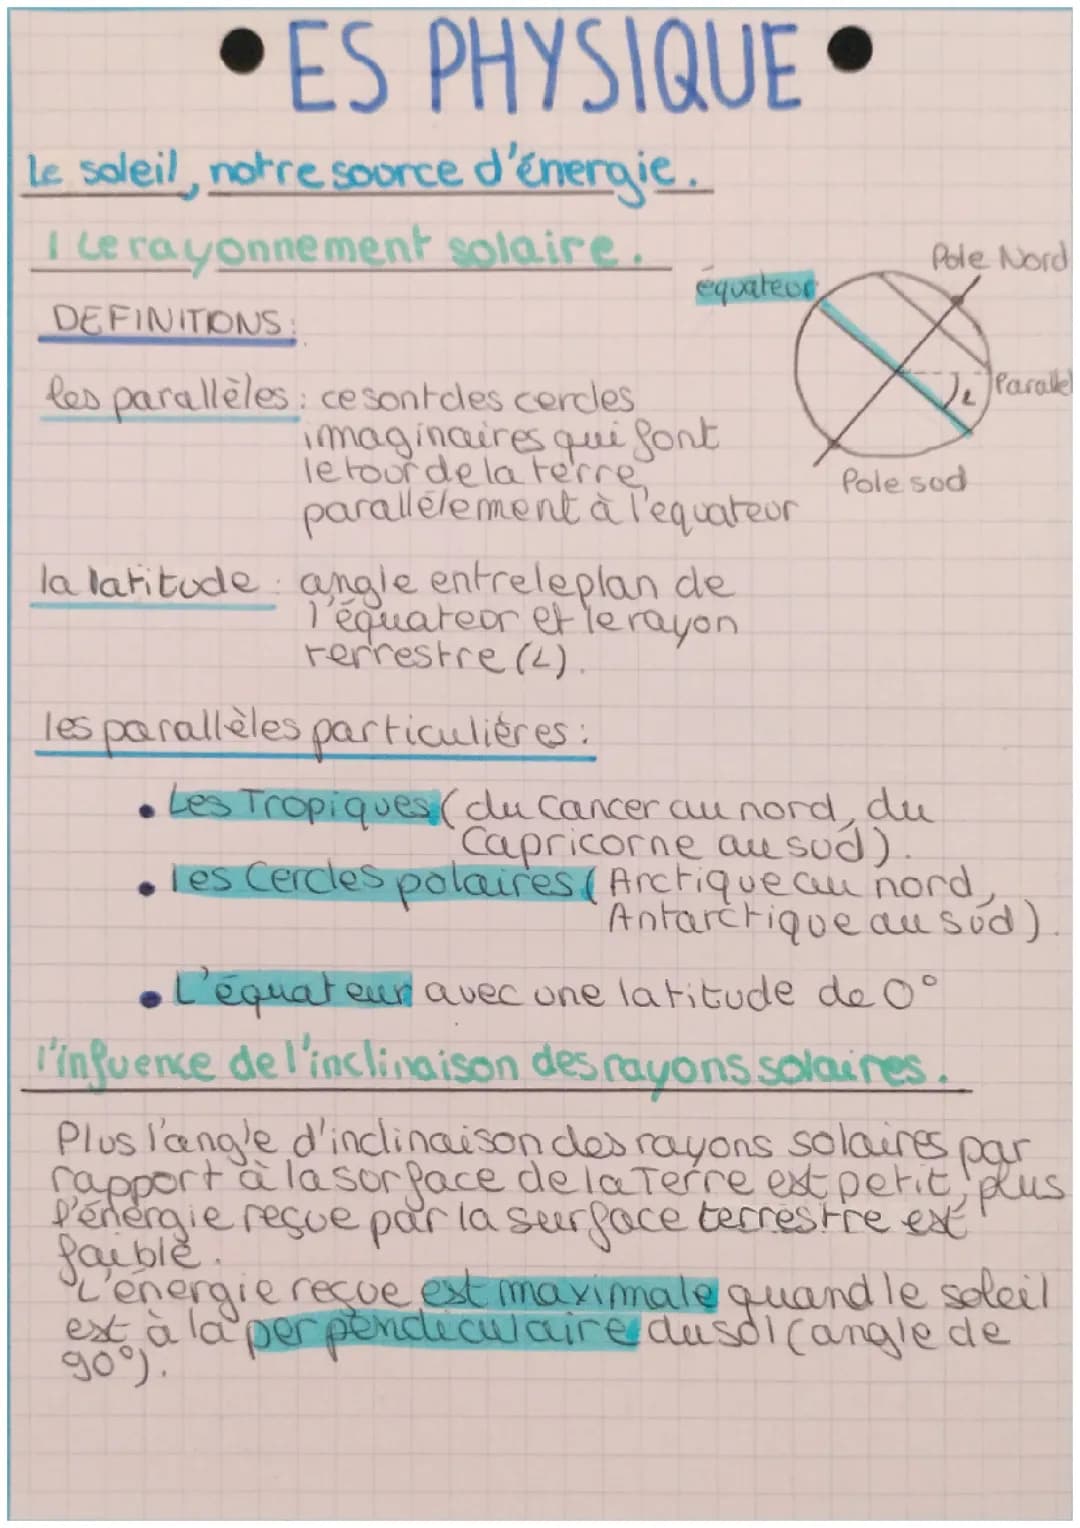 • ES PHYSIQUE •
Le soleil, notre source d'énergie.
1 Le rayonnement solaire.
Pole Nord
équateur
DEFINITIONS:
Parallel
L
les parallèles: ce sont des cercles
imaginaires qui font
le tour de la terre
parallélement à l'equateur
Pole sud
la latitude: angle entre le plan de
l'équateur et le rayon
terrestre (L).
les parallèles particulières:
• Les Tropiques (du Cancer au nord, du
Capricorne au sud).
• les Cercles polaires (Arctique au nord,
Antarctique au sud).
• L'équateur avec une latitude de 0°
l'infuence de l'inclinaison des rayons solaires.
Plus l'angle d'inclinaison des rayons solaires par
rapport à la surface de la Terre est petit, plus
l'énergie reçue par la surface terrestre est
faible.
L'énergie reçue est maximale quand le soleil
est à la perpendiculaire du sol (angle de
90°).